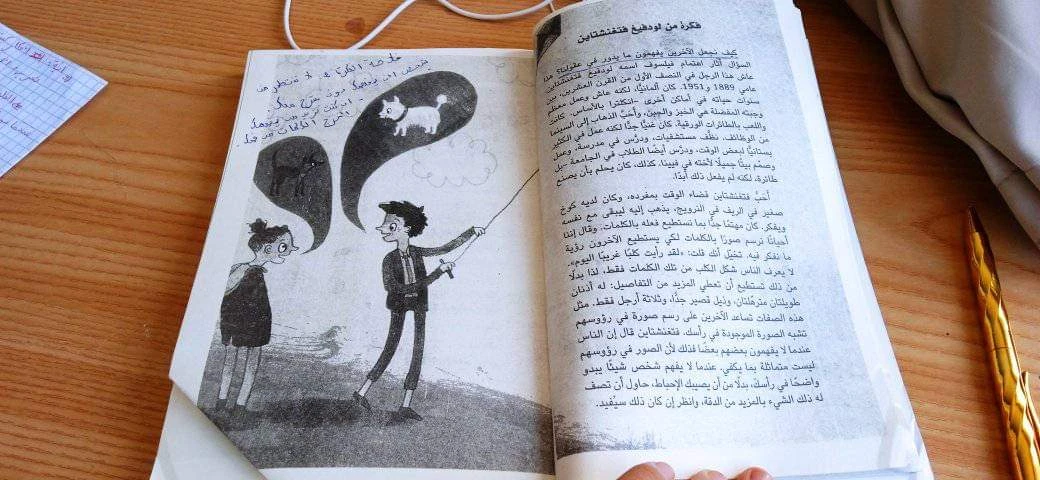 فكرة من لودفيغ فتغنشتاين
كيف نجعل الآخرين يفهمون ما يدور في عقولنا؟ هذا
السؤال أثار اهتمام فيلسوف اسمه لودفيغ فتغنشتاين
عاش هذا الرجل في النصف الأول من القرن العشرين، بين
عامي 1889 و1951. كان ألمانيًّا، لكنه عاش وعمل معظم
سنوات حياته في أماكن أخرى -انكلترا بالأساس. كانت
وجبته المفضلة هي الخبز والجبن، وأحبَّ الذهاب إلى السينما
واللعب بالطائرات الورقية. كان غنيًّا جدًّا لكنه عمل في الكثير
من الوظائف. نظَّف مستشفيات، ودرَّس في مدرسة، وعمل
بستانيًّا لبعض الوقت، ودرَّس أيضًا الطلاب في الجامعة -بل
وصمَّم بيتًا جميلًا لأخته في فيينا. كذلك، كان يحلم بأن يصنع
طائرة، لكنه لم يفعل ذلك أبدًا.
أحبَّ فتغنشتاين قضاء الوقت بمفرده، وكان لديه كوخ
صغير في الريف في النرويج، يذهب إليه ليبقى مع نفسه
ويفكر. كان مهتمًا جدًّا بما نستطيع فعله بالكلمات. وقال إننا
أحيانًا نرسم صورًا بالكلمات لكي يستطيع الآخرون رؤية
ما نفكر فيه. تخيَّل أنك قلت: «لقد رأيت كلبًا غريبًا اليوم».
لا يعرف الناس شكل الكلب من تلك الكلمات فقط، لذا بدلًا
من ذلك تستطيع أن تعطي المزيد من التفاصيل: له أذنان
طويلتان مترهّلتان، وذيل قصير جدًّا، وثلاثة أرجل فقط. مثل
هذه الصفات تساعد الآخرين على رسم صورة في رؤوسهم
تشبه الصورة الموجودة في رأسك. فتغنشتاين قال إن الناس
عندما لا يفهمون بعضهم بعضًا فذلك لأن الصور في رؤوسهم
ليست متماثلة بما يكفي. عندما لا يفهم شخص شيئًا يبدو
واضحًا في رأسك، بدلًا من أن يصيبك الإحباط، حاول أن تصف
له ذلك الشيء بالمزيد من الدقة، وانظر إن كان ذلك سيُفيد.